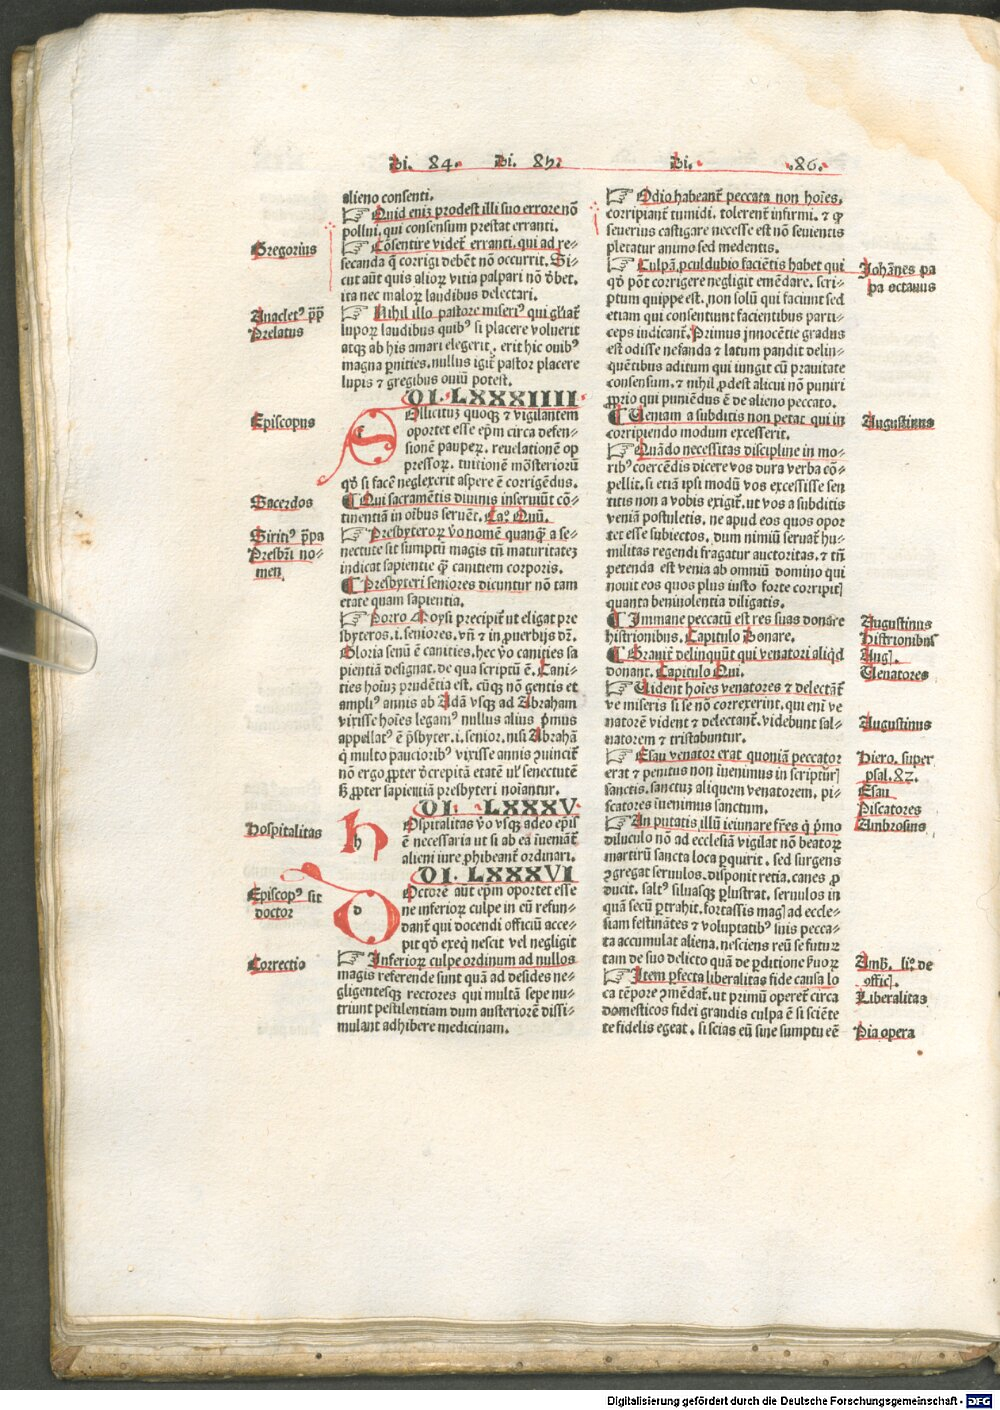 Di. 84. Di. 85. Di. 86.
alieno consenti.
☞ Quid eniz prodest illi suo errore nō
pollui, qui consensum prestat erranti.
Gregorius
☞ Cōsentire videt᷑ erranti, qui ad re⸗
secanda q̄ corrigi debēt nō occurrit. Si⸗
cut aūt quis alioꝝ vitia palpari nō ꝺbet,
ita nec maloꝝ laudibus delectari.
Anacletꝰ pp̄
Prelatus
☞ Nihil illo pastore miseriꝰ qui gl̄iat᷑
lupoꝝ laudibus quibꝰ si placere voluerit
atqꝫ ab his amari elegerit, erit hic ouibꝰ
magna ꝑnities. nullus igit᷑ pastor placere
lupis ⁊ gregibus ouiū potest.
DI. LXXXIIII
Episcopus
SOllicituz quoqꝫ ⁊ vigilantem
oportet esse ep̄m circa defen⸗
sionē pauperꝝ, reuelationē op
pressoꝝ, tuitionē mōsterioru̅
qd̄ si facē neglexerit aspere ē corrigēdus.
Sacerdos
¶ Qui sacramētis diuinis inseruiūt cō⸗
tinentiā in oībus seruēt. Ca. Qm̄.
Siritiꝰ pp̄a
Presbrī no⸗
men
☞ Presbyteroꝝ v̄o nomē quanqꝫ a se⸗
nectute sit sumptū magis tn̄ maturitatez
indicat sapientie qꝫ canitiem corporis.
¶ Presbyteri seniores dicuntur nō tam
etate quam sapientia.
☞ Porro Moysi precipit᷑ ut eligat pre
sbyteros .i. seniores. vn̄ ⁊ in ꝓuerbijs dr̄.
Gloria senū ē canities. hec v̄o canities sa
pientiā designat. de qua scriptū ē. Cani⸗
ties hoīuz prudētia est. cūqꝫ nō gentis et
ampliꝰ annis ab Adā vsqꝫ ad Abraham
vixisse hoīes legamꝰ nullus alius pͥmus
appellatꝰ ē p̄sbyter .i. senior. nisi Abrahā
qͥ multo ꝑaucioribꝰ vixisse annis ꝯuincit᷑
nō ergo ꝓpter ꝺcrepitā etatē uꝉ senectutē
sꝫ ꝓpter sapientiā presbyteri noīantur.
DI. LXXXV
Hospitalitas
HOspitalitas v̄o vsqꝫ adeo ep̄is
ē necessaria ut si ab ea īueniāt᷑
alieni iure ꝓhibeant᷑ ordinari.
DI. LXXXVI
Episcopꝰ sit
doctor
DOctorē aūt ep̄m oportet esse
ne inferioꝝ culpe in eū refun⸗
dant᷑ qui docendi officiū acce⸗
pit qd̄ exeqͥ nescit vel negligit
Correctio
☞ Inferioꝝ culpe ordinum ad nullos
magis referende sunt quā ad desides ne⸗
gligentesqꝫ rectores qui multā sepe nu⸗
triunt pestilentiam dum austeriorē dissi⸗
mulant adhibere medicinam.
☞ Odio habeant᷑ peccata non hoīes,
corripiant᷑ tumidi, tolerent᷑ infirmi. ⁊ qd̄
seuerius castigare necesse est nō seuientis
pletatur animo sed medentis.
Johānes pa
pa octauus
☞ Culpā ꝓculdubio faciētis habet qui
qd̄ pōt corrigere negligit emēdare. scri⸗
ptum quippe est. non solū qui faciunt sed
etiam qui consentiunt facientibus parti⸗
ceps indicant᷑. Primus innocētie gradus
est odisse nefanda ⁊ latum pandit delin⸗
quētibus aditum qui iungit cū prauitate
consensum. ⁊ nihil ꝓdest alicui nō puniri
ꝓprio qui puniēdus ē de alieno peccato.
Augustinus
¶ Ueniam a subditis non petat qui in
corripiendo modum excesserit.
☞ Quādo necessitas discipline in mo⸗
ribꝰ coercēdis dicere vos dura verba cō⸗
pellit. si etiā ipsi modū vos excessisse sen
titis non a vobis exigit᷑. ut vos a subditis
veniā postuletis. ne apud eos quos opor
tet esse subiectos. dum nimiū seruat᷑ hu⸗
militas regendi fragatur auctoritas. ⁊ tn̄
petenda est venia ab omniū domino qui
nouit eos quos plus iusto forte corripitꝭ
quanta beniuolentia diligatis.
Augustinus
Histrionibus
¶ Immane peccatū est res suas donare
histrionibus. Capitulo Donare.
Augꝭ.
Uenatores
¶ Grauit᷑ delinquūt qui venatori aliqd
donant. Capitulo Qui.
☞ Uident hoīes venatores ⁊ delectāt᷑
ve miseris si se nō correxerint. qui eni̅ ve
Augustinus
natorē vident ⁊ delectant᷑. videbunt sal⸗
uatorem ⁊ tristabuntur.
Hiero. super
psal. 82.
Esau
Piscatores
☞ Esau venator erat quoniā peccator
erat ⁊ penitus non īuenimus in scripturꝭ
sanctis, sanctuz aliquem venatorem, pi⸗
scatores īuenimus sanctum.
Ambrosius
☞ An putatis illū ieiunare fr̄es qͥ pͥmo
diluculo nō ad ecclesiā vigilat nō beatoꝝ
martirū sancta loca ꝑquirit. sed surgens
ꝯgregat seruulos. disponit retia. canes ꝓ
ducit. saltꝰ siluasqꝫ ꝑlustrat. seruulos in
quā secū ꝑtrahit. fortassis magꝭ ad eccle⸗
siam festinātes ⁊ voluptatibꝰ suis pecca⸗
ta accumulat aliena. nesciens reū se futuꝝ
tam de suo delicto quā de ꝑditione ẜuoꝝ
Amb̄. li. de
officꝭ.
Liberalitas
☞ Item ꝑfecta liberalitas fide causa lo
ca tēpore ꝯmēdat᷑. ut primū operet᷑ circa
domesticos fidei grandis culpa ē si sciēte
Pia opera
te fidelis egeat. si scias eū sine sumptu eē
Digitalisierung gefördert durch die Deutsche Forschungsgemeinschaft - DFG